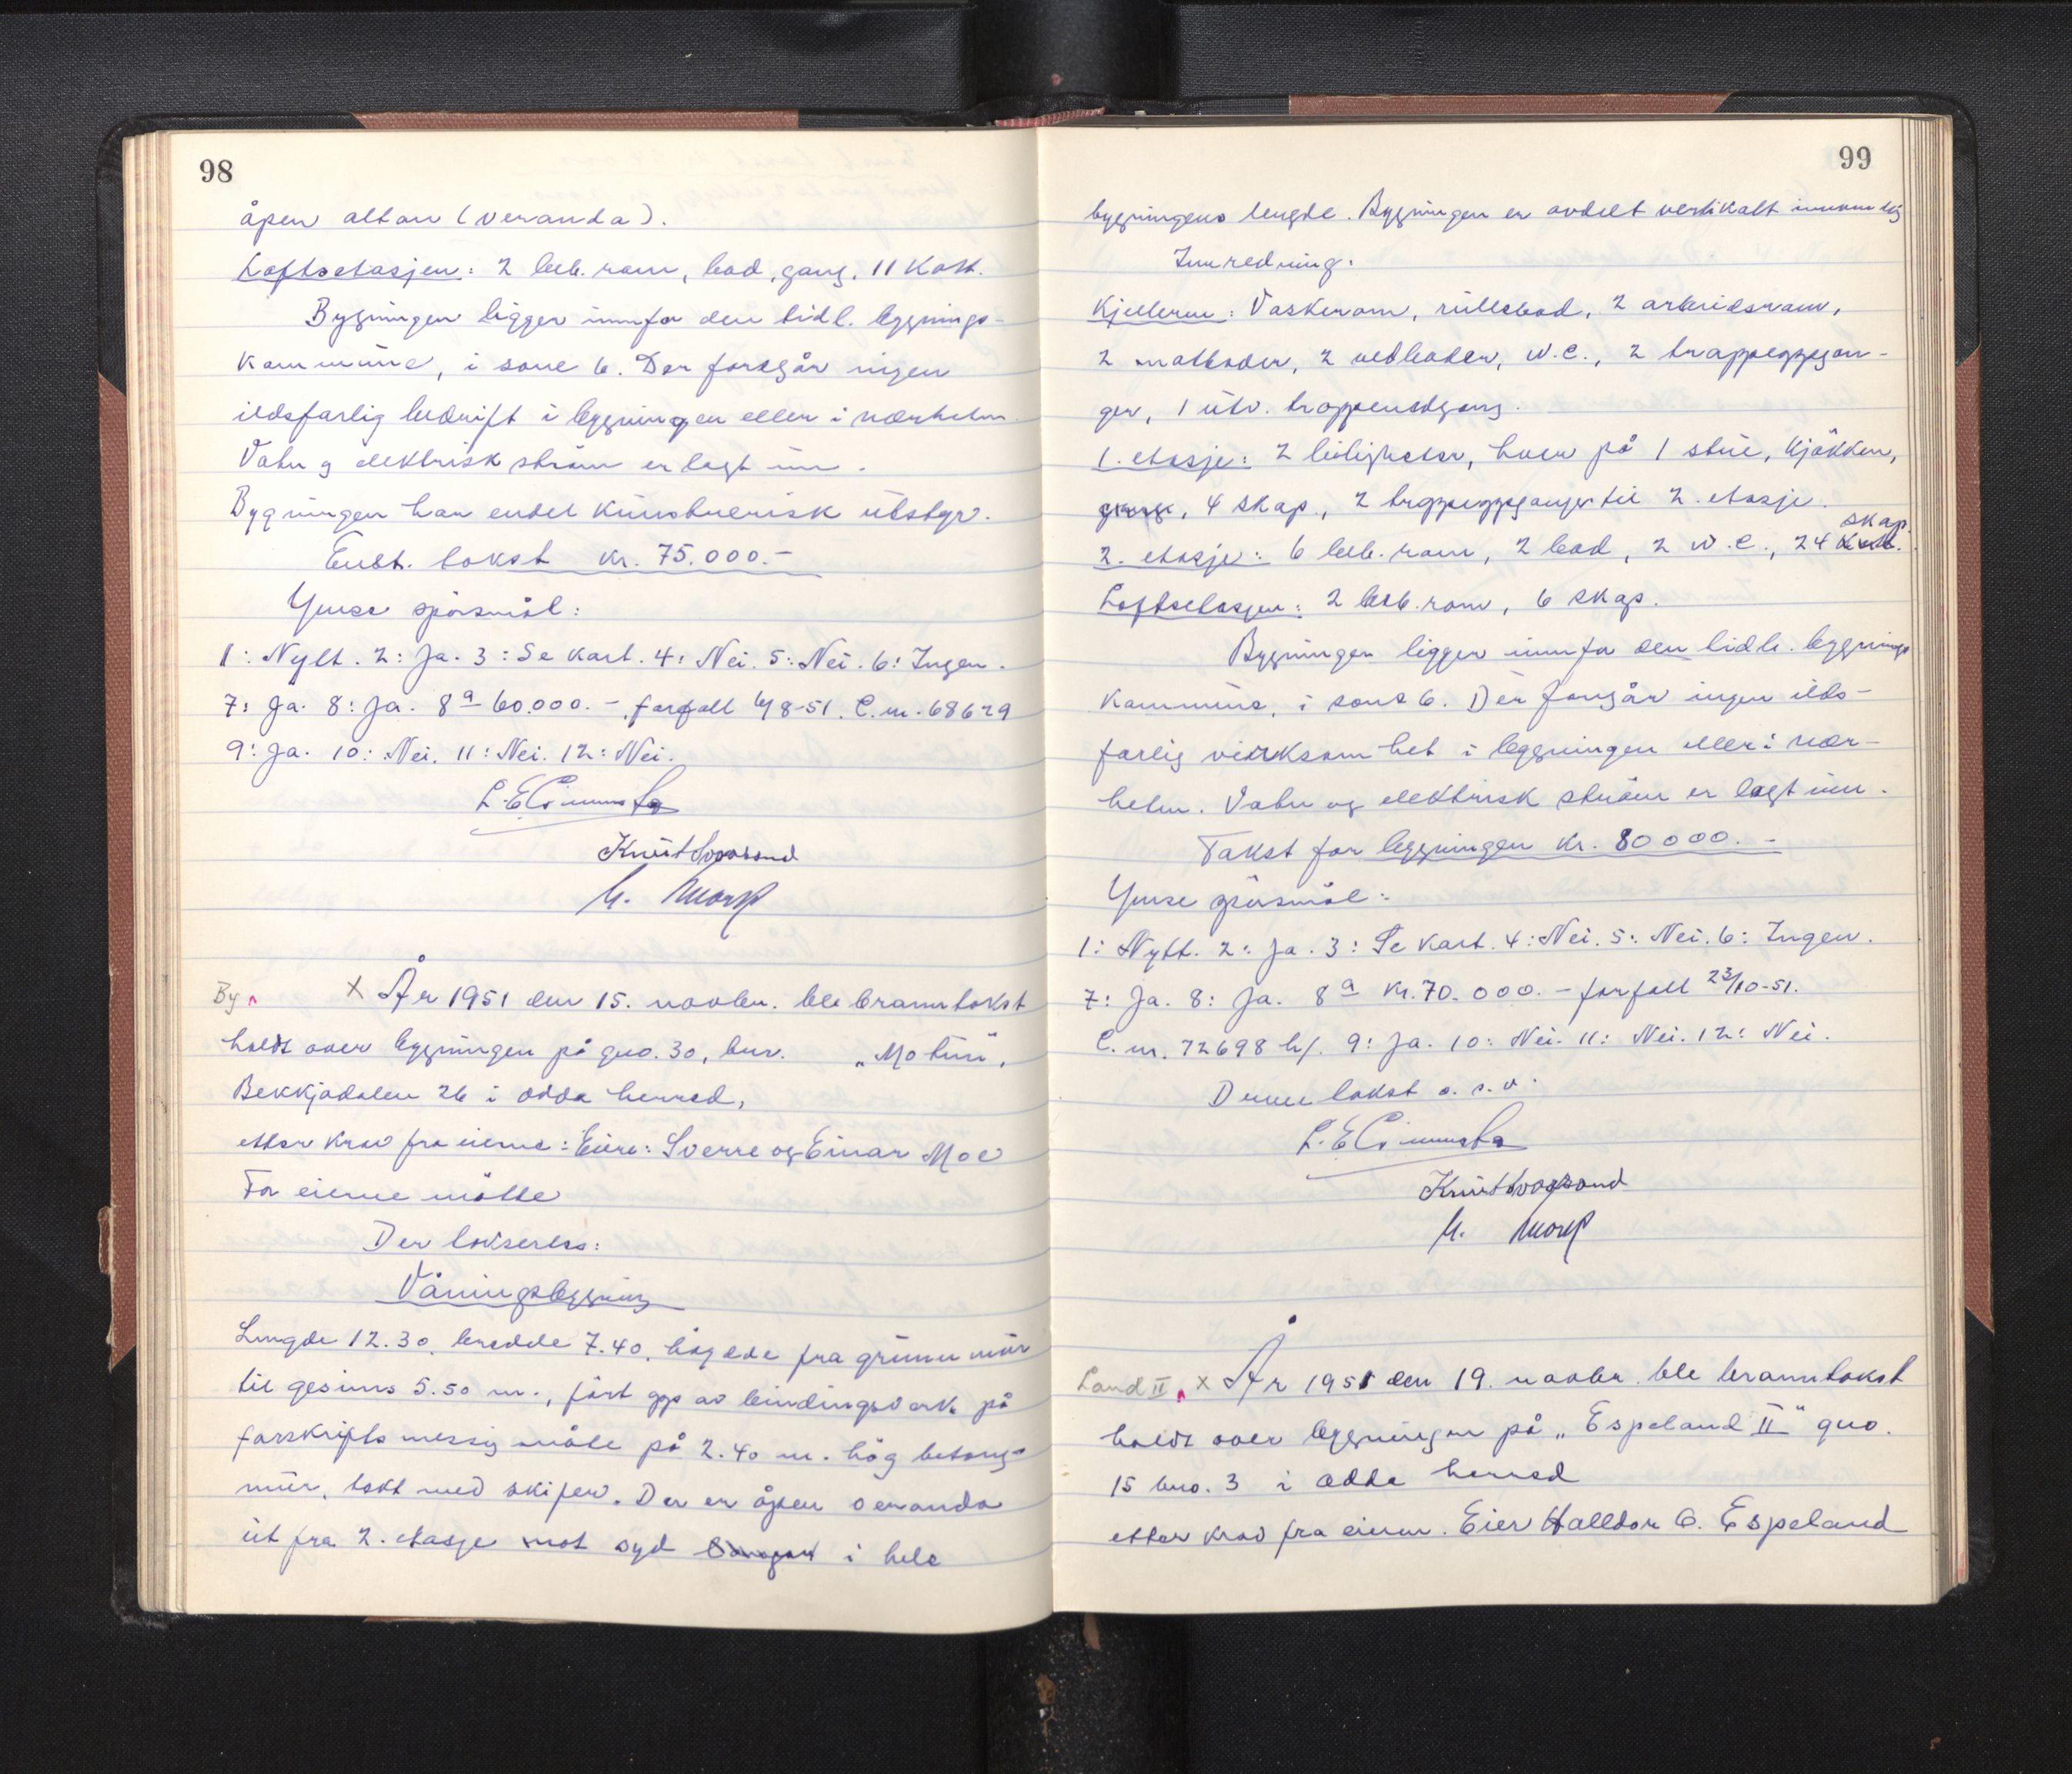 98
åpen altan (veranda).
Loftsetasjen: 2 beb. rom, bad, gang, 11 Kott.
Bygningen ligger innfor den tidl. bygnings-
kommune, i sone 6. Der foregår ingen
ildsfarlig bedrift i bygningen eller i nærheten.
Vatn og elektrisk strøm er lagt inn.
Bygningen har endel kunstnerisk utstyr.
takst kr. 75.000.-
Ymse spörsmål:
1: Nytt. 2: Ja. 3: Se kart. 4: Nei. 5: Nei. 6: Ingen.
7: Ja. 8: Ja. 8a 60.000.- forfall 4/8-51. C.nr. 68629
9: Ja. 10: Nei. 11: Nei. 12: Nei.
L. E.
Knut
M. Mork
By
x År 1951 den 15. novbr. ble branntakst
holdt over bygningen på gno. 30, bnr. „Motun",
Bekkjadalen 26 i Odda herred,
etter krav fra eierne: Eiere: Sverre og Einar Moe
For eierne møtte
Der takseres:
Våningsbygning
Lengde 12.30, bredde 7.40, høgde fra grunnmur
til gesims 5.50 m., fört opp av bindingsverk på
forskriftsmessig måte på 2.40 m. høg betong-
mur, tekt med skifer. Der er åpen veranda
ut fra 2. etasje mot syd i hele
99
bygningens lengde. Bygningen er avdelt vertikalt innvendig
Innredning:
Kjelleren: Vaskerom, rullebod, 2 arbeidsrom,
2 matboder, 2 vedboder, W.C., 2 trappeoppgan-
ger, 1 utv. trappenedgang.
1. etasje: 2 leiligheter, hver på 1 stue, kjøkken,
gang, 4 skap, 2 trappeoppganger til 2. etasje.
skap.
2. etasje: 6 beb. rom, 2 bad, 2 W.C., 24 Kott.
Loftsetasjen: 2 beb. rom, 6 skap.
Bygningen ligger innfor den tidl. bygnings
kommune, i sone 6. Der foregår ingen ilds-
farlig virksomhet i bygningen eller i nær-
heten. Vatn og elektrisk strøm er lagt inn.
Takst for bygningen kr. 80000.-
Ymse spörsmål:
1: Nytt. 2: Ja. 3: Se kart. 4: Nei. 5: Nei. 6: Ingen.
7: Ja. 8: Ja. 8a Kr. 70.000.- forfall 23/10-51.
C.nr. 72698 b/. 9: Ja. 10: Nei. 11: Nei. 12: Nei.
Denne takst o.s.v.
L. E.
Knut
M. Mork
Land II x År 1951 den 19. novbr. ble branntakst
holdt over bygningen på „Espeland II" gno.
15 bno. 3 i Odda herred
etter krav fra eieren. Eier Halldor O. Espeland